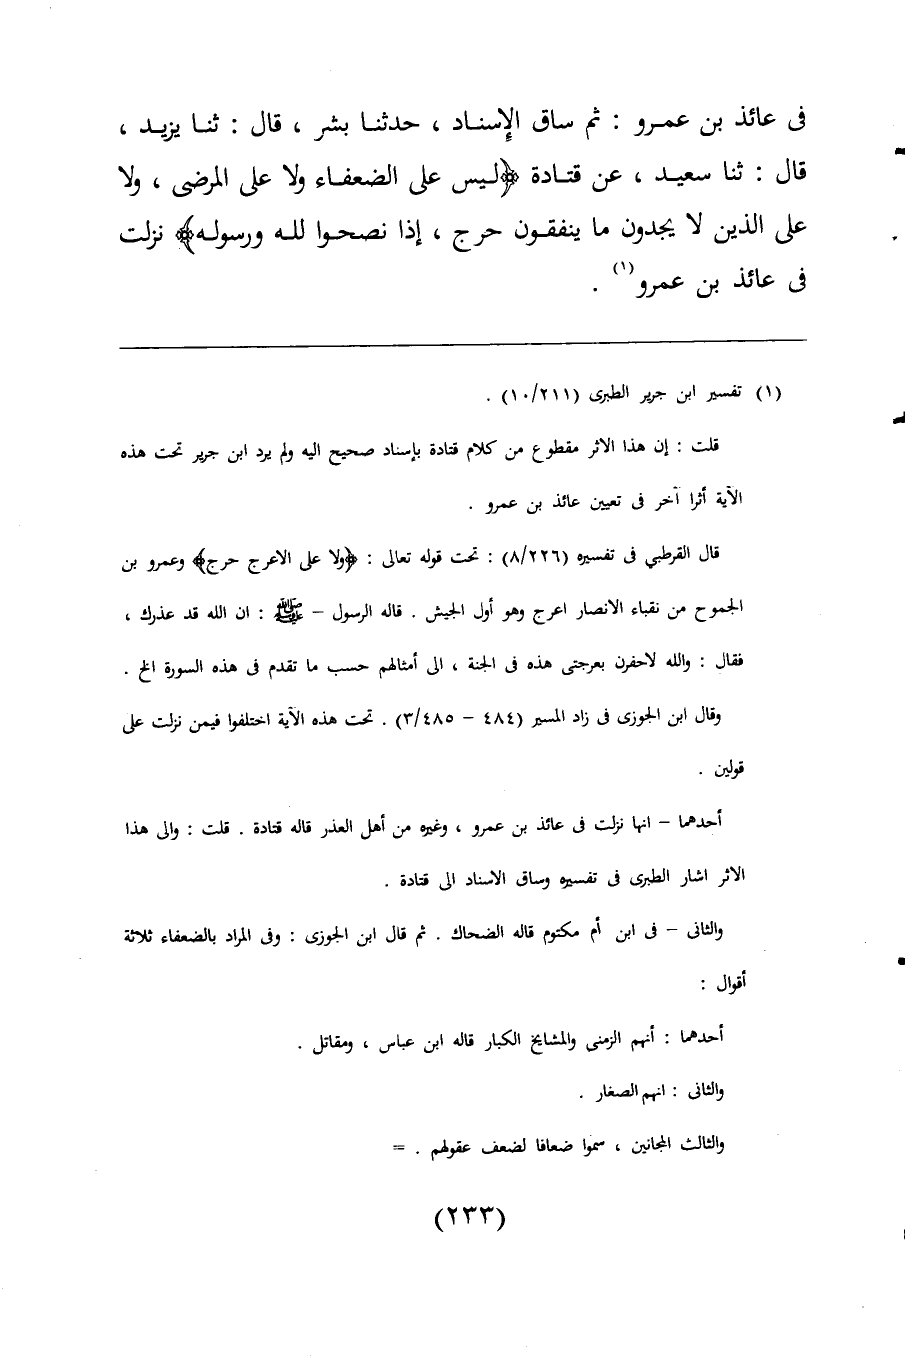 فى عائذ بن عمـرو : ثم ساق الإسنـاد ، حدثنـا بشر ، قال : ثنـا يزيـد ،
قال : ثنا سعيـد ، عن قتـادة ﴿لـيس على الضعفـاء ولا على المرضى ، ولا
على الذين لا يجدون ما ينفقـون حرج ، إذا نصحـوا للـه ورسولـه﴾ نزلت
فى عائذ بن عمرو(١) .
(١) تفسير ابن جرير الطبرى (١٠/٢١١) .
قلت : إن هذا الاثر مقطوع من كلام قتادة بإسناد صحيح اليه ولم يرد ابن جرير تحت هذه
الآية أثرا آخر فى تعيين عائذ بن عمرو .
قال القرطبي فى تفسيره (٨/٢٢٦) : تحت قوله تعالى : ﴿ولا على الاعرج حرج﴾ وعمرو بن
الجموح من نقباء الانصار اعرج وهو أول الجيش . قاله الرسول – ﷺ : ان الله قد عذرك ،
فقال : والله لاحفرن بعرجتى هذه فى الجنة ، الى أمثالهم حسب ما تقدم فى هذه السورة الخ .
وقال ابن الجوزى فى زاد المسير (٤٨٤ – ٣/٤٨٥) . تحت هذه الآية اختلفوا فيمن نزلت على
قولين .
أحدهما – انها نزلت فى عائذ بن عمرو ، وغيره من أهل العذر قاله قتادة . قلت : والى هذا
الاثر اشار الطبرى فى تفسيره وساق الاسناد الى قتادة .
والثانى – فى ابن أم مكتوم قاله الضحاك . ثم قال ابن الجوزى : وفى المراد بالضعفاء ثلاثة
أقوال :
أحدهما : أنهم الزمنى والمشايخ الكبار قاله ابن عباس ، ومقاتل .
والثانى : انهم الصغار .
والثالث المجانين ، سموا ضعافا لضعف عقولهم . =
(٢٣٣)